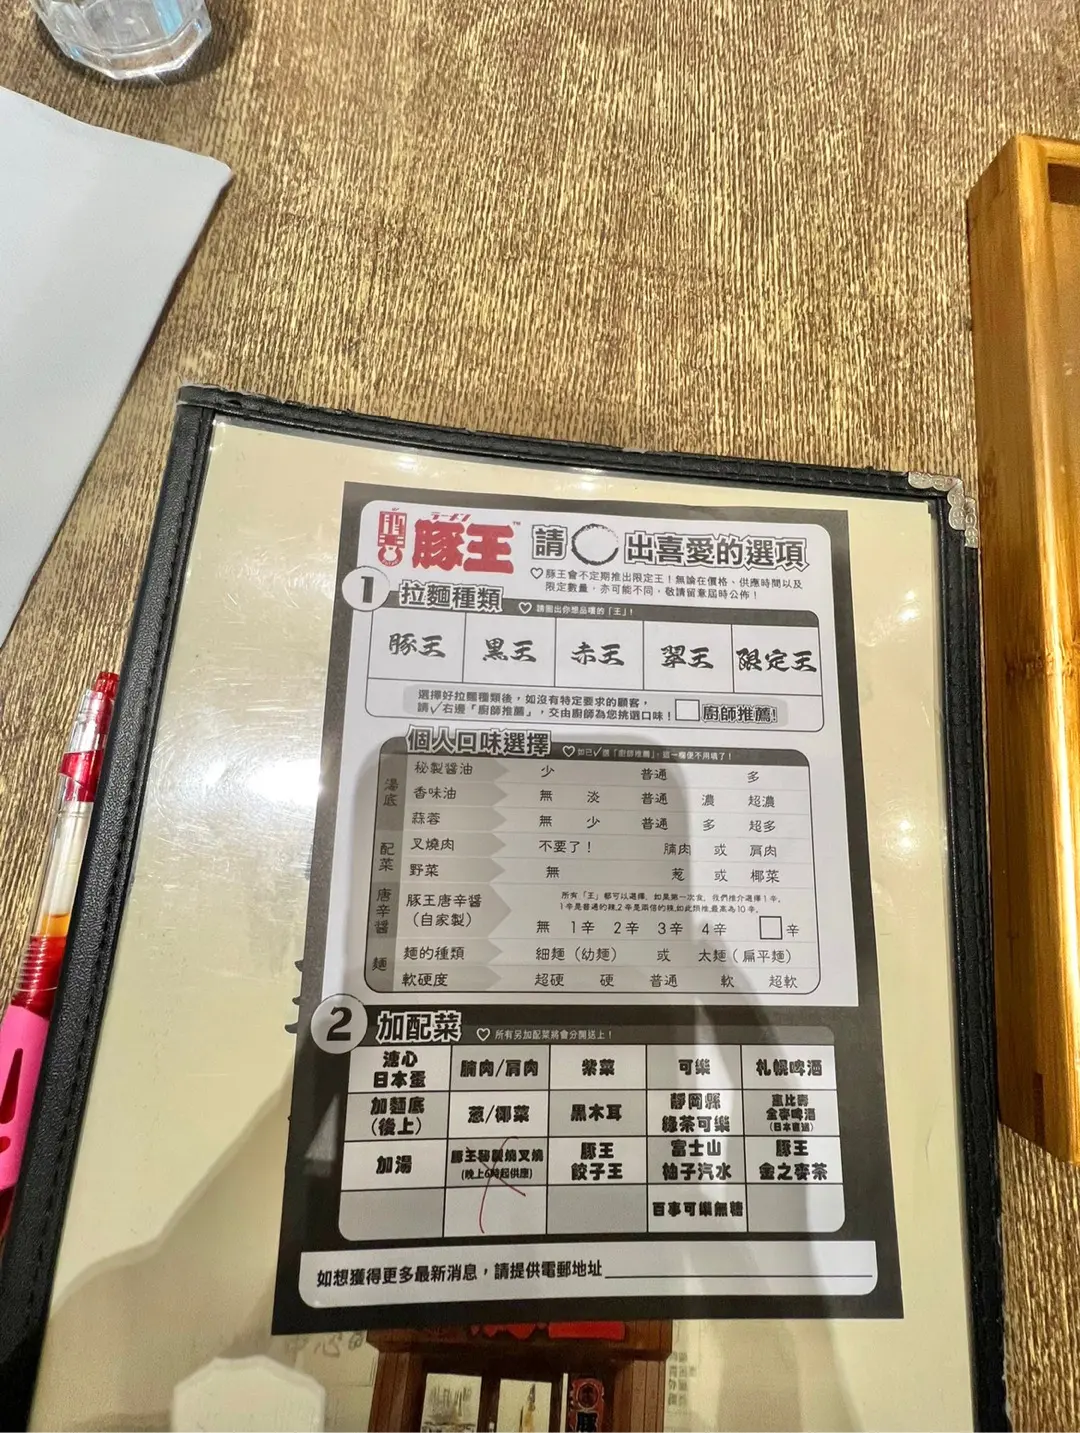 ラーメン
豚王™ 請 出喜愛的選項
♡豚王會不定期推出限定王！無論在價格、供應時間以及
限定數量，亦可能不同，敬請留意屆時公佈！
1 拉麵種類 ♡ 請圈出你想品嚐的「王」！
豚王 黑王 赤王 翠王 限定王
選擇好拉麵種類後，如沒有特定要求的顧客，
請✓右邊「廚師推薦」，交由廚師為您挑選口味！ 廚師推薦!
個人口味選擇 ♡如已✓選「廚師推薦」，這一欄便不用填了！
湯底 秘製醬油 少 普通 多
香味油 無 淡 普通 濃 超濃
蒜蓉 無 少 普通 多 超多
配菜 叉燒肉 不要了！ 腩肉 或 肩肉
野菜 無 葱 或 椰菜
唐辛醬 豚王唐辛醬
（自家製）
所有「王」都可以選擇，如果第一次食，我們推介選擇1辛。
1辛是普通的辣,2辛是兩倍的辣,如此類推,最高為10辛。
無 1辛 2辛 3辛 4辛 辛
麵 麵的種類 細麵（幼麵） 或 太麵（扁平麵）
軟硬度 超硬 硬 普通 軟 超軟
2 加配菜 ♡ 所有另加配菜將會分開送上！
溏心
日本蛋 腩肉/肩肉 紫菜 可樂 札幌啤酒
加麵底
（後上） 葱/椰菜 黑木耳 靜岡縣
綠茶可樂 惠比壽
金麥啤酒
（日本直送）
加湯 豚王秘製燒叉燒
(晚上6時起供應) 豚王
餃子王 富士山
柚子汽水 豚王
金之麥茶
百事可樂無糖
如想獲得更多最新消息，請提供電郵地址
豚